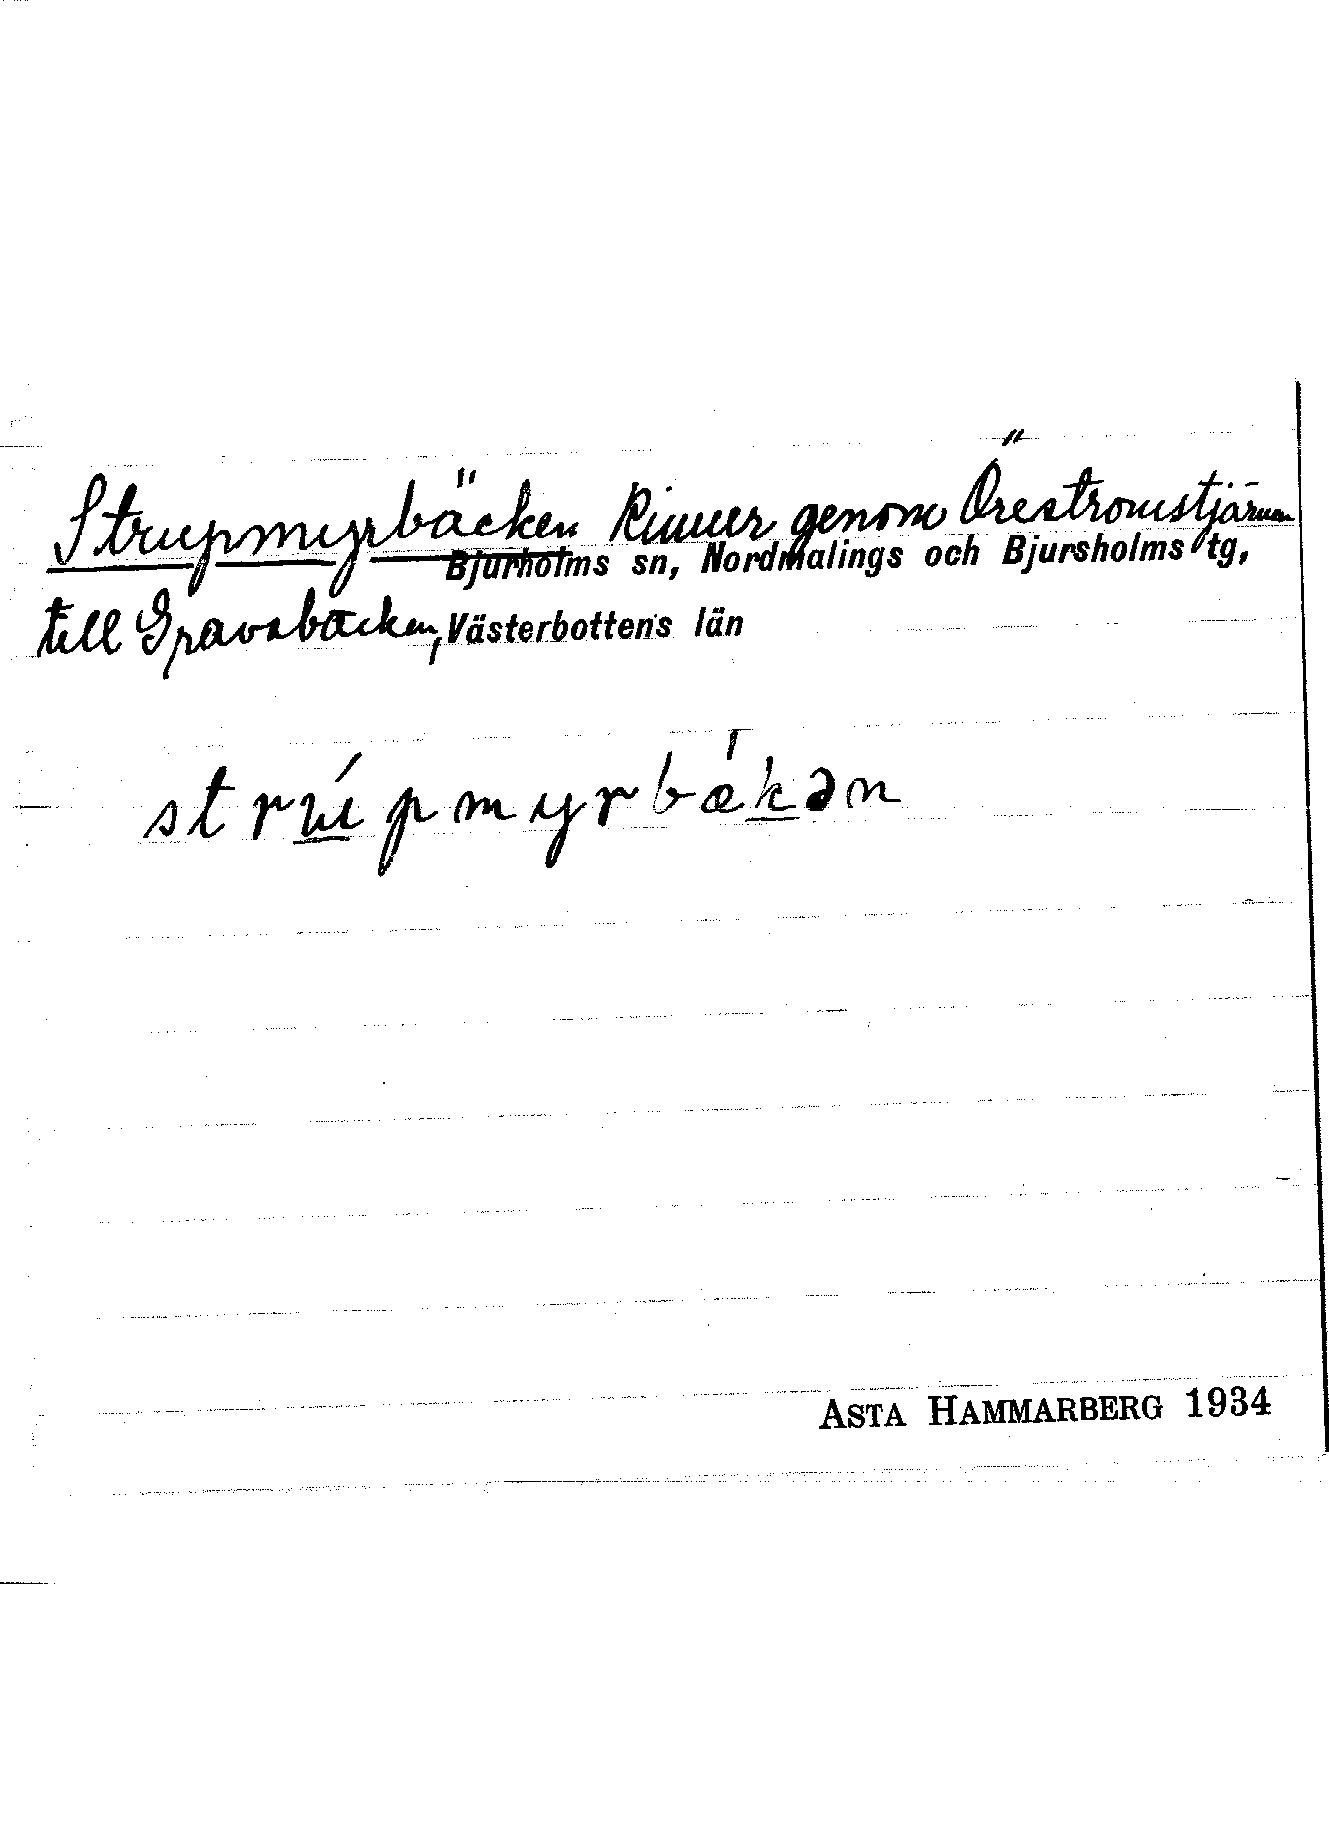 Strupmyrbäcken Rinner genom Öreströmstjärnen
Bjurholms sn, Nordmalings och Bjursholms tg,
till Gravabäcken, Västerbottens län
strúpmyrbækən
ASTA HAMMARBERG 1934